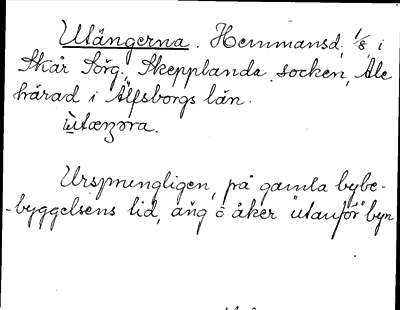 Utängerna. Hemmansd. 1/8 i
Skår Sörg., Skepplanda socken, Ale
härad i Älfsborgs län.
Ursprungligen, på gamla bybe-
-byggelsens tid, äng o åker "utanför" byn